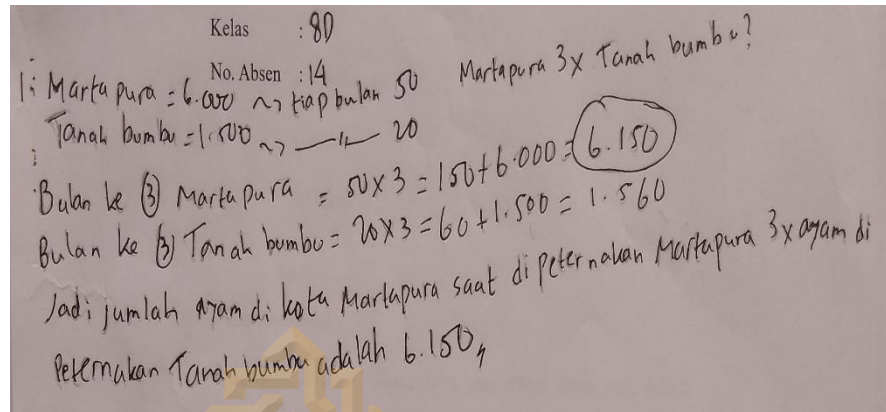 Kelas : 8D
No. Absen : 14
1. Martapura = 6.000 ~> tiap bulan 50 Martapura 3x Tanah bumbu?
Tanah bumbu = 1.500 ~> —〃— 20
Bulan ke ③ Martapura = 50 x 3 = 150 + 6.000 = 6.150
Bulan ke ③ Tanah bumbu = 20 x 3 = 60 + 1.500 = 1.560
Jadi jumlah ayam di kota Martapura saat di peternakan Martapura 3x ayam di
Peternakan Tanah bumbu adalah 6.150,,